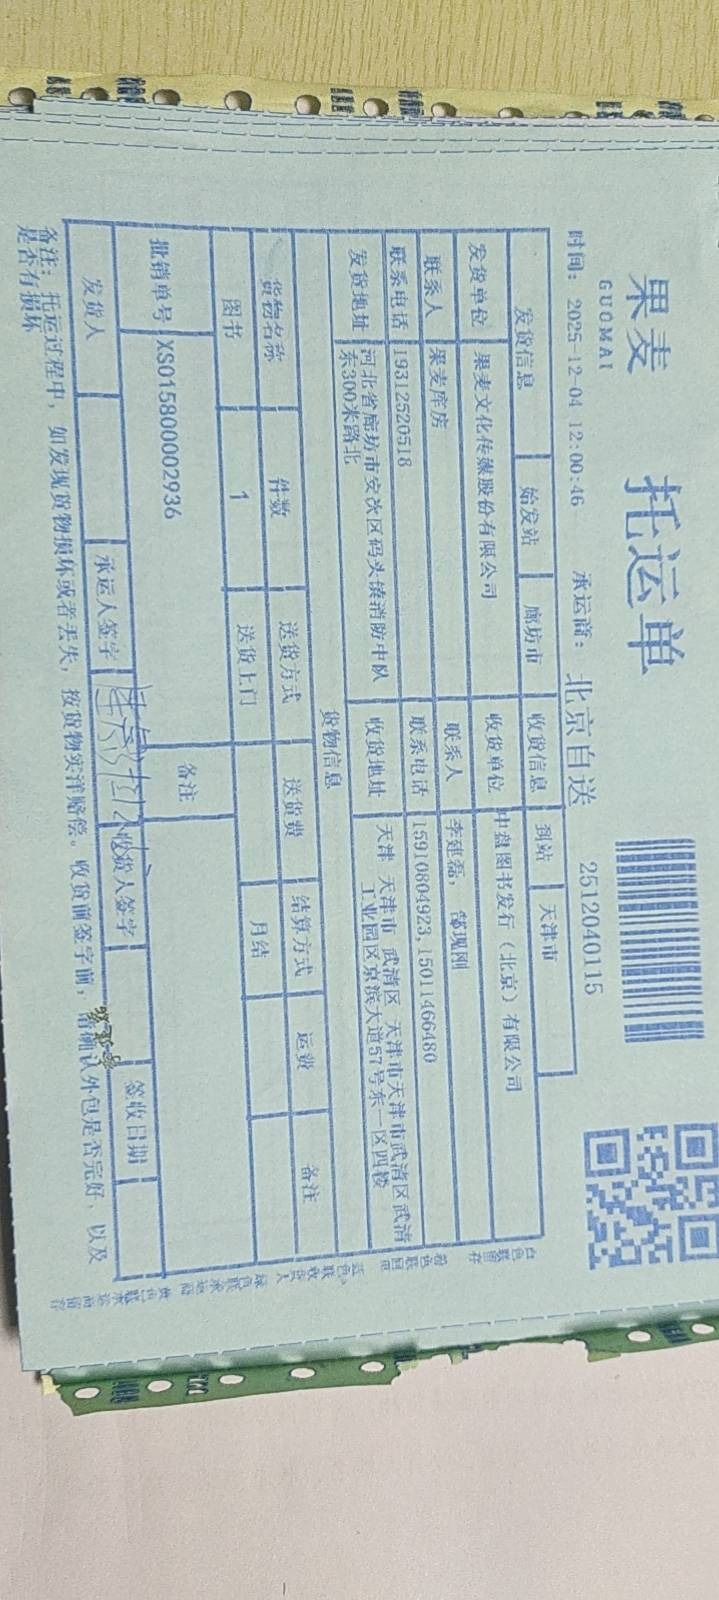 果麦
GUOMAI
托运单
时间: 2025-12-04 12:00:46 承运商: 北京自送 2512040115
发货信息 始发站 廊坊市 收货信息 到站 天津市
发货单位 果麦文化传媒股份有限公司 收货单位 中盘图书发行（北京）有限公司
联系人 果麦库房 联系人 李建磊, 郜现刚
联系电话 19312520518 联系电话 15910804923,15011466480
发货地址 河北省廊坊市安次区码头镇消防中队
东300米路北
收货地址 天津 天津市 武清区 天津市天津市武清区武清
工业园区京滨大道57号东一区四楼
货物信息
货物名称 件数 送货方式 送货费 结算方式 运费 备注
图书 1 送货上门 月结
批销单号 XS015800002936 备注
发货人 承运人签字 收货人签字 签收日期
备注: 托运过程中, 如发现货物损坏或者丢失, 按货物实洋赔偿。收货前签字前, 请确认外包是否完好, 以及
是否有损坏